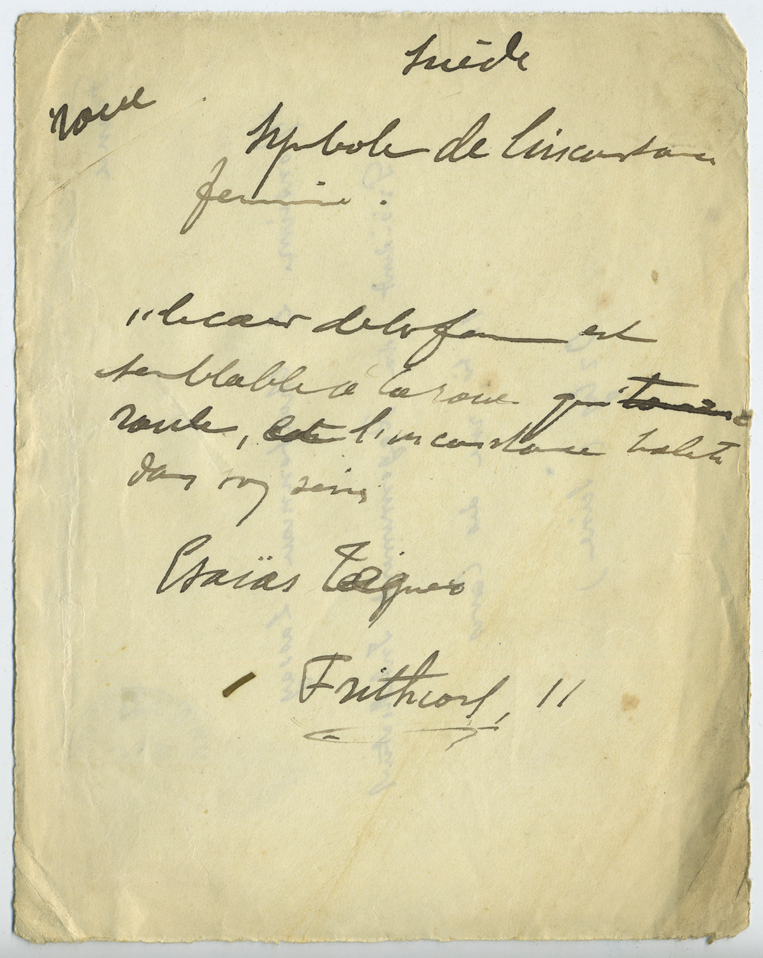 Suède
roue
Symbole de l'inconstance
féminine.
"le cœur de la femme est
semblable à la roue qui tourne
roule, et l'inconstance habite
dans son sein
Esaïas Tégner
Frithiof, 11